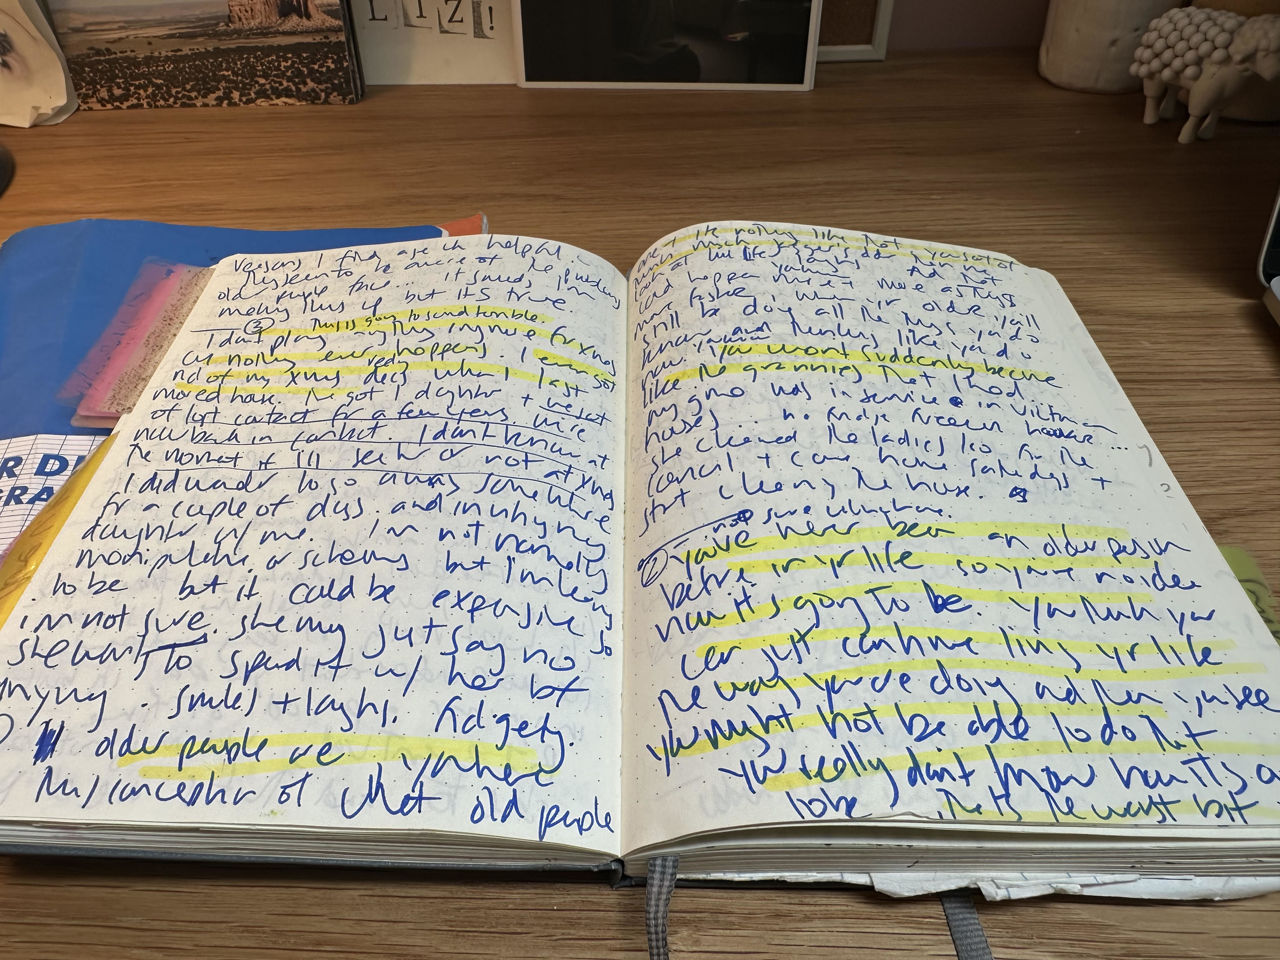 LIZ!
R D
GRA
reasons I find age uk helpful is
they seem to be aware of the
old people face... it sounds I'm
making this up but it's true.
② This is going to sound terrible.
I don't plan anything anymore for xmas
cus nothing ever really happens. I even got
rid of my xmas decs when I last
moved house. I've got 1 daughter + we sort
of lost contact for a few years. we're
now back in contact. I don't know at
the moment if I'll see her or not at xmas
I did wonder to go away somewhere
for a couple of days. and inviting my
daughter w/ me. I'm not
manipulative or scheming but I'm
to be but it could be expensive so
I'm not sure. she may just say no
she wants to spend it w/ her bf
anyway. smiles + laughs. fidgety.
older people are you have
misconception of what old people
are + it's nothing like that. you sort of
look at
would happen
when yr older yr all
still be doing all the things you do
know and thinking like you do
now. You won't suddenly become
like the grannies that I had...
my gma was in service in victorian
houses... no fridge freezer
she cleaned the ladies loo for the
council + came home saturdays +
start cleaning the house.
not sure
② You've never been an older person
before in yr life so you've no idea
how it's going to be. You think you
can just continue living yr life
the way you're doing and then you see
you might not be able to do that
you really don't know how it's
to be. that's the worst bit